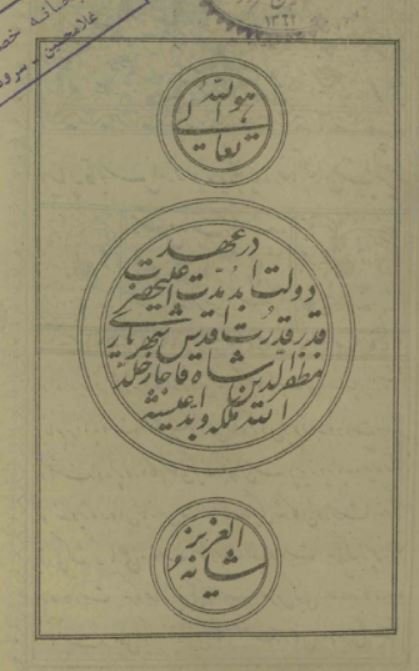 ۱۳۶۲
غلامحسین - سرود
هو الله
تعالی
در عهد
دولت ابد مدت اعلیحضرت
قدر قدرت اقدس شهریاری
مظفر الدین شاه قاجار خلد
الله ملکه و
العزیز
شانه